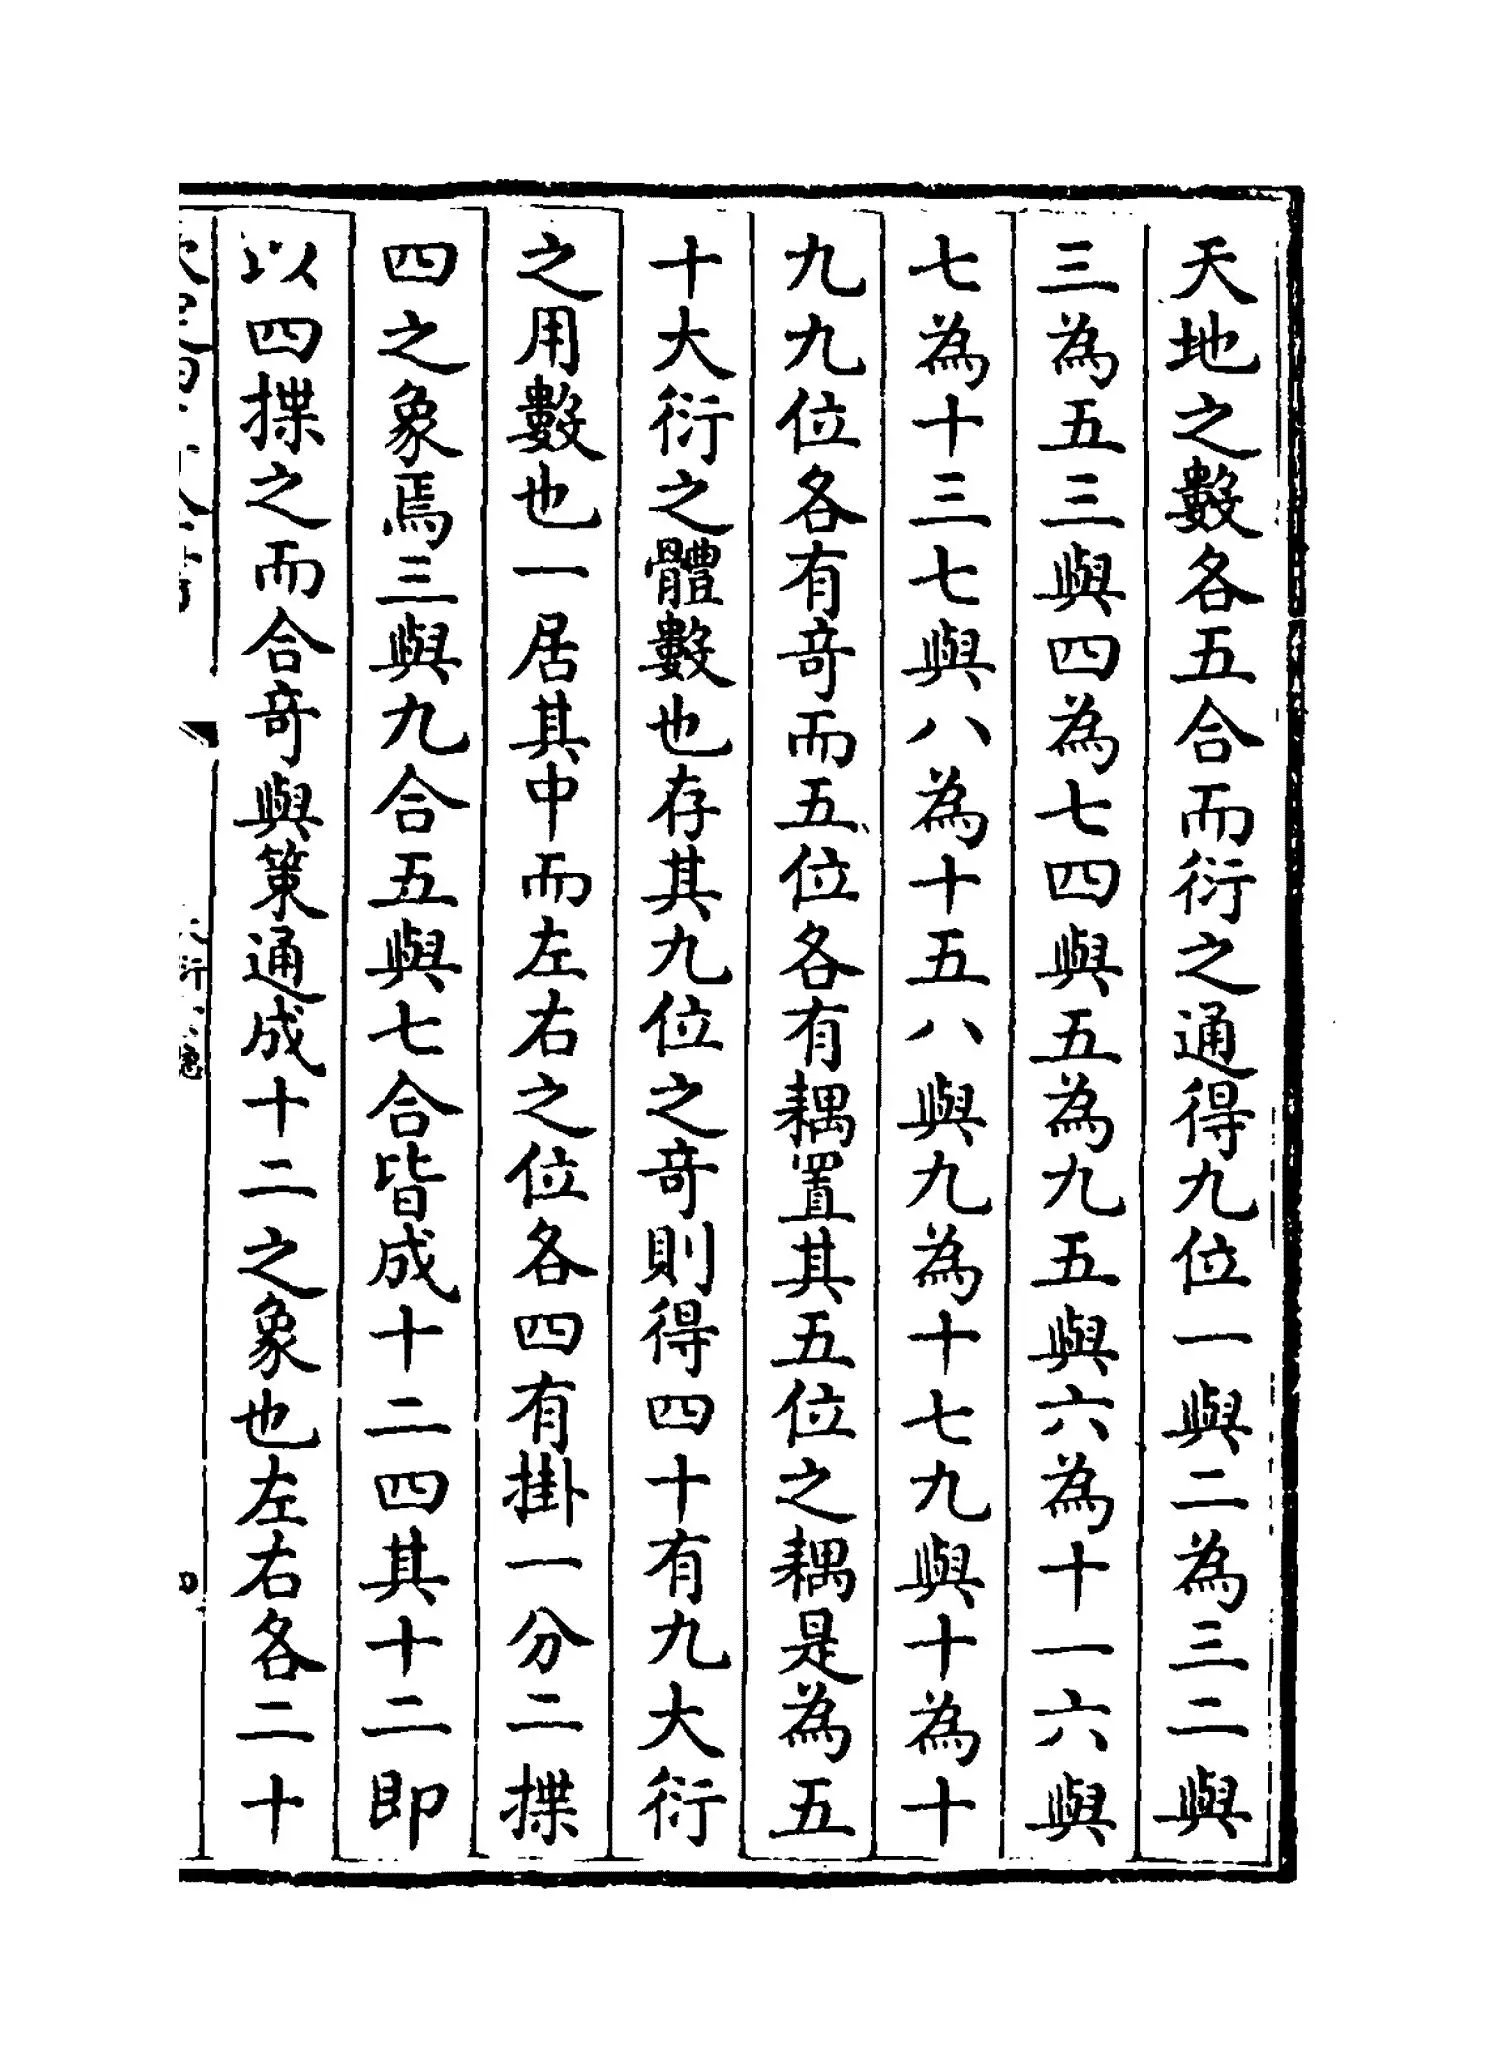 天地之數各五合而衍之通得九位一與二為三二與
三為五三與四為七四與五為九五與六為十一六與
七為十三七與八為十五八與九為十七九與十為十
九九位各有竒而五位各有耦置其五位之耦是為五
十大衍之體數也存其九位之竒則得四十有九大衍
之用數也一居其中而左右之位各四有掛一分二揲
四之象焉三與九合五與七合皆成十二四其十二即
以四揲之而合竒與策通成十二之象也左右各二十